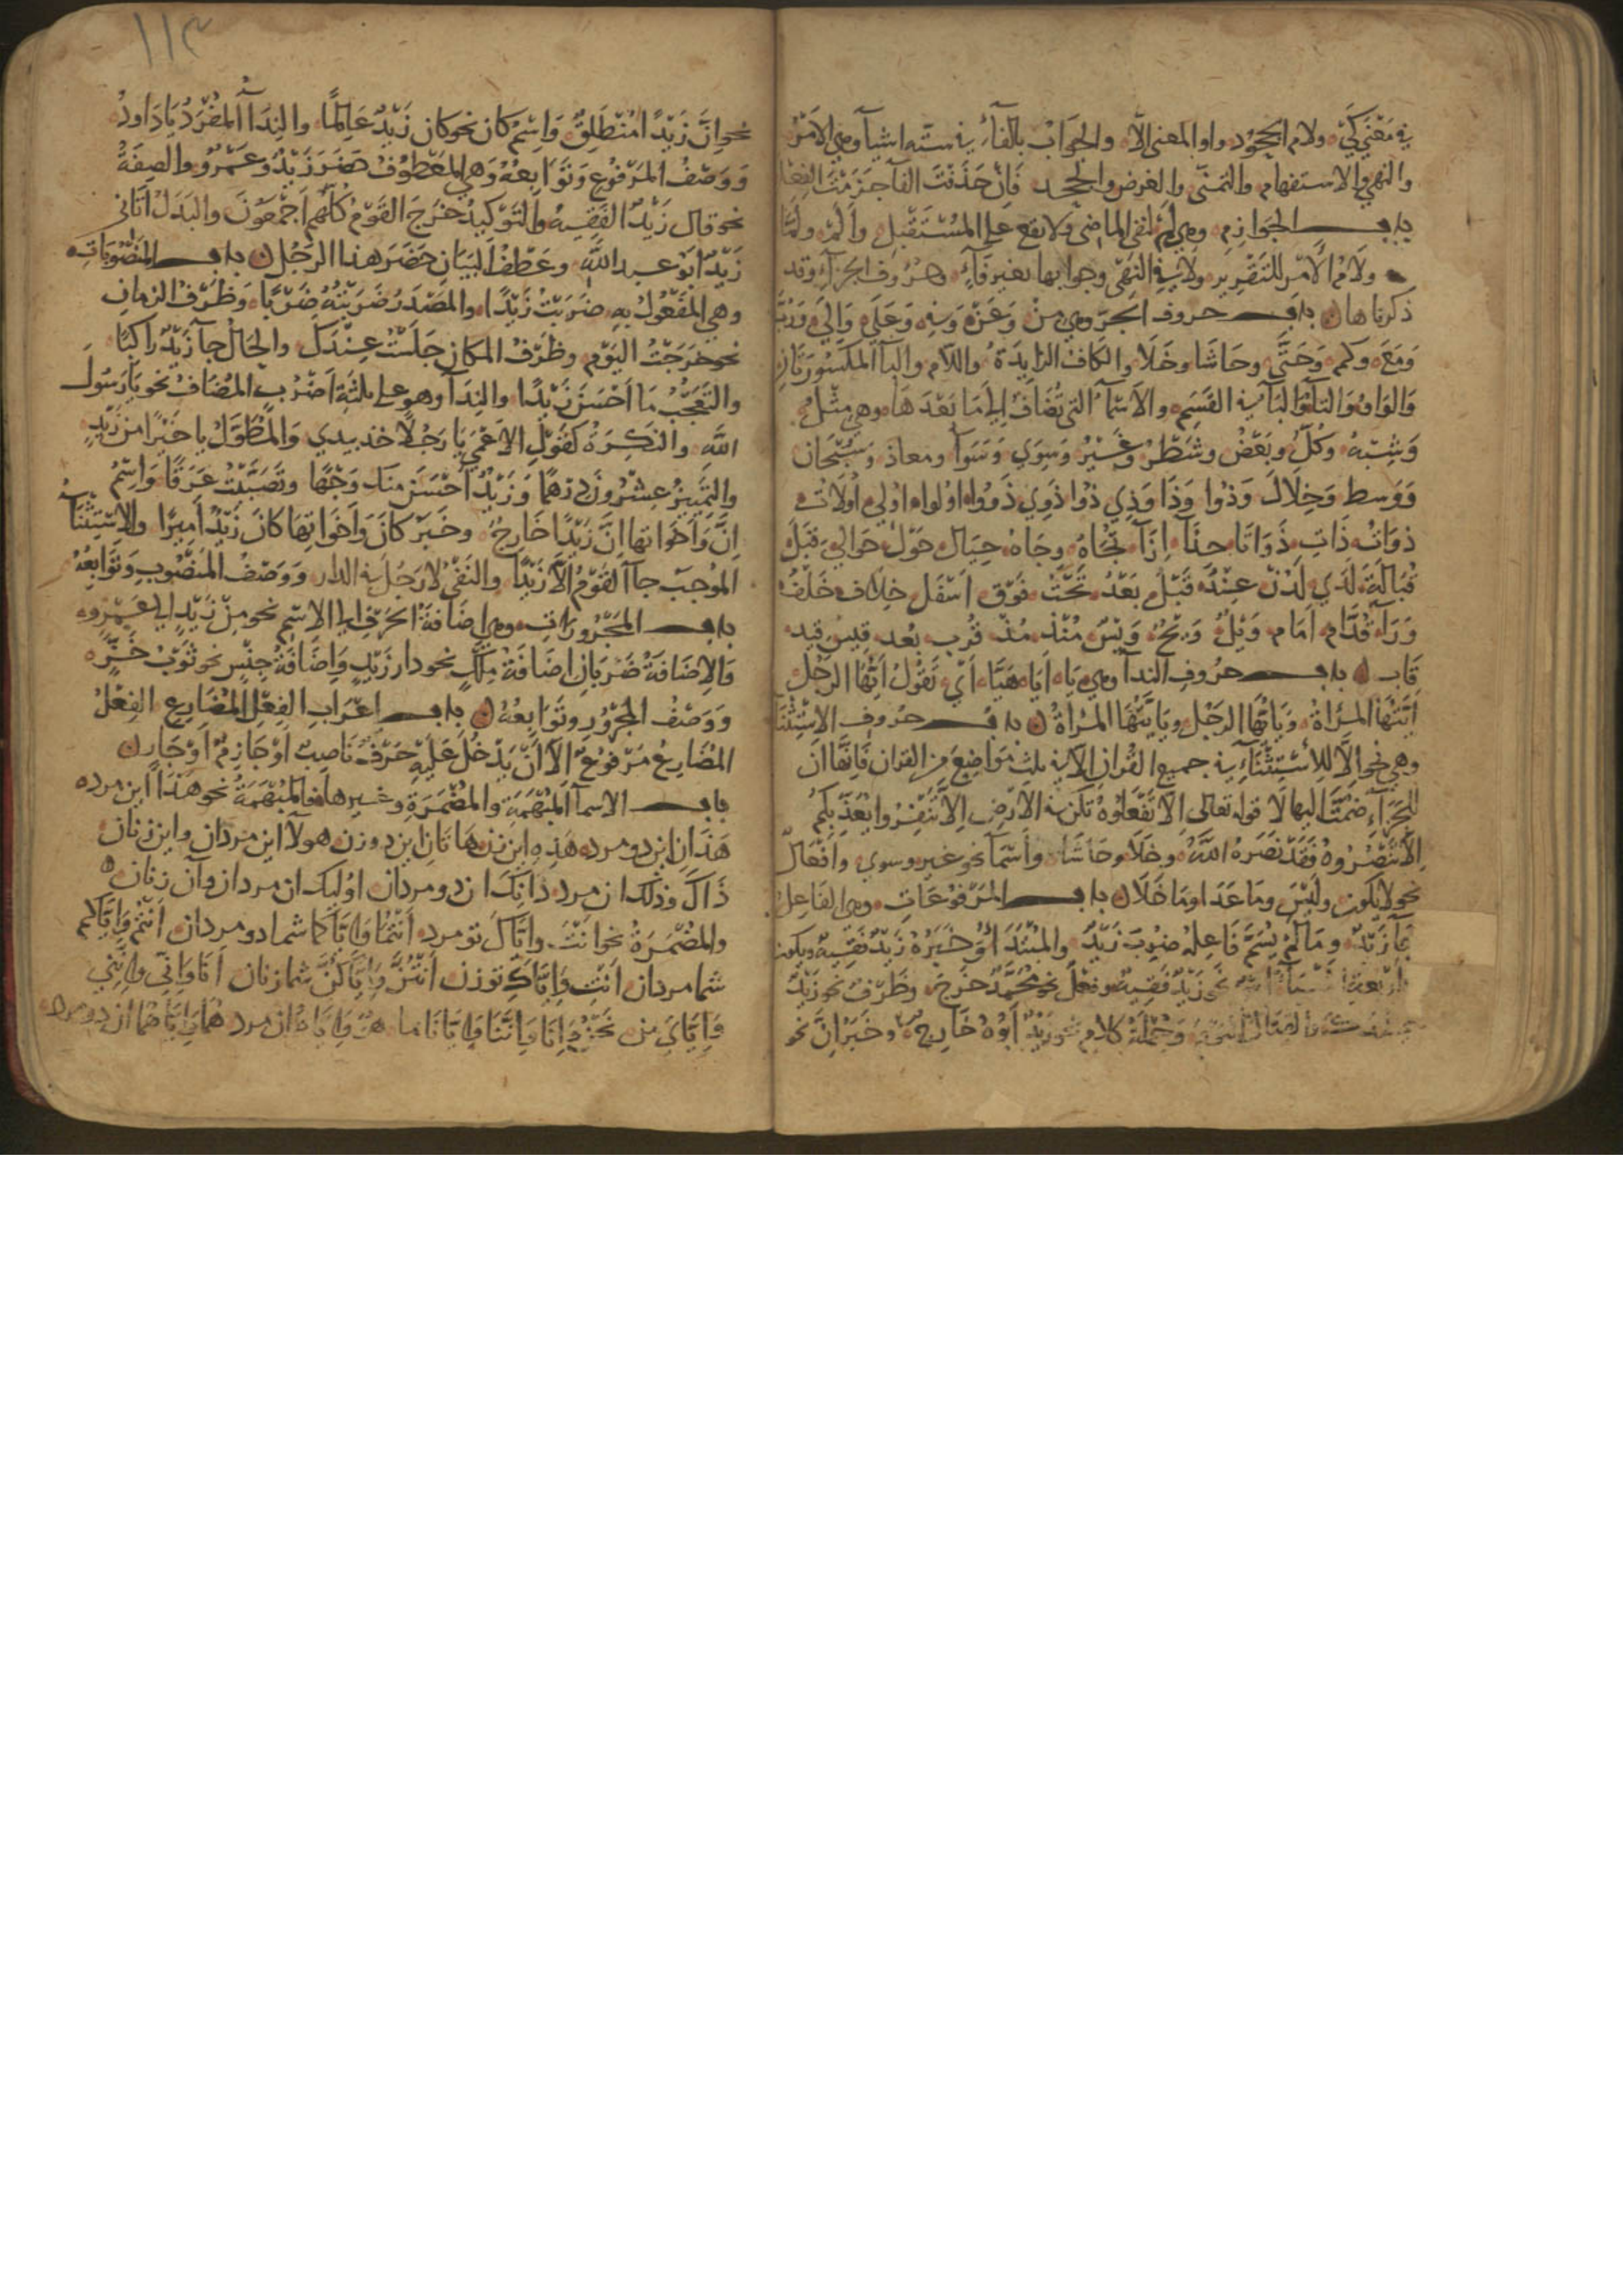 في مَعْنَي كَيْ ولام الجحُود واو المعنى الّا والجَوَابُ بالفآء في ستّه اشيآ وهي الامْرُ
والنهي والاستفهام والتمنّى والعرض والجحد فَاِنْ حَذَفْتَ الفآ جَزَمْتَ الفِعْل
باب الجَوَازِم وهي لَمْ لنفى الماضى ولا تقع على المُسْتَقْبِل وأَلَمْ ولَمَّا
ولامُ الأمْر للتقرير ولا في النهْى وجوابها بغير فآءٍ وحروف الجزآء وقد
ذكرناها باب حروف الجرّ وهي مِنْ وَعَنْ وَفي وَعَلَى وَاِلَي وَرُبَّ
وَمَعَ وكم وَحَتَّى وحَاشَا وخَلَا والكَاف الزايِدَةُ واللام والبآ المكسُورَتَانِ
وَالوَاو وَالتآ وَالبَآ في القَسَمِ والاَسْمآء التي تُضَافُ اِلَى مَا بَعْدَهَا وهي مِثْلُ
وَشِبْهُ وَكُلُّ وَبَعْضُ وشَطْرُ وغَيْرُ وَسِوَي وَسَوآ ومعاذ وسُبْحَان
وَوَسط وَخِلَالَ وَذُوا وَذَا وَذِي ذُوا ذَوِي ذَوُوا اولوا اوُلِي اُولَات
ذوَاتُ ذَاتِ ذَوَاتَا حِذَآءَ اِزَآءَ تُجَاهُ وجَاهُ حِيَال حَوْلَ حَوَالِي قِبَلَ
قُبَالَةَ لَدَي لَدُنْ عِنْدَ قَبْلُ بَعْدُ تَحْتُ فَوْق اَسْفَل خِلاف خَلْف
وَرَآءَ قُدَّام اَمَام وَيْلُ وَيْحُ وَيْسُ مُنْذُ مُذْ قُرب بُعد قِيسَ قِيد
قَاب باب حرُوفِ الندآ وهي يَا اَيَا هَيَا اَيْ تَقُولُ اَيُّهَا الرَجُل
اَيَّتُهَا المَرْأةُ وَيَا اَيُّهَا الرَجُل ويَا اَيَّتُهَا المَرْاَةُ باب حُروف الاِسْتِثْنَآ
وهي نحو اِلّا لِلْاسْتِثْنَآءِ في جميع القُرانِ الّا في ثلث مَوَاضِعَ مِن القران فَاِنَّهَا اِنْ
للجَزَآءِ ضُمَّتْ اليها لَا قوله تعالى اِلَّا تَفْعَلُوهُ تَكُن في الاَرْضِ اِلَّا تَنْفِرُوا يُعَذِّبْكُمْ
اِلَّا تَنْصُرُوهُ فَقَدْ نَصَرَهُ اللَّهُ وخَلا وحَاشَا وأَسْمآء نحو غير وسوي وأَفْعَال
نحو لا يكون ولَيْسَ ومَا عَدَا ومَا خَلَا باب المَرْفُوعَاتِ وهي الفَاعِل
جآ زَيْدٌ ومَا لَمْ يُسَمَّ فَاعِلهُ ضُرِبَ زَيْدٌ والمُبْتَدَاُ وَخَبَرُهُ زَيْدٌ فَقِيهٌ ويكون
اَرْبَعَة اَشْيَآءَ نحو زَيْدٌ فَقِيهٌ وفِعْل نحو مُحَمَّدٌ خَرَجَ وظَرْف نحو زَيْدٌ
وجُمْلَةُ كلام نحو زَيْدٌ اَبُوهُ خَارِج وخَبَرُ اِنَّ نحو
١١٣
نحو اِنَّ زَيْدًا مُنْطَلِقٌ وَاِسْمُ كان نحو كان زَيْدٌ عَالِمًا والنِدَآ المُفْرَدُ يَا دَاودُ
وَوَصْفُ المَرْفُوع وَتَوَابِعُهُ وَهي المَعْطوُف حَضَرَ زَيْدٌ وعَمْرٌو والصِفَةُ
نحو قال زَيْدٌ الفَقِيهُ والتَوْكِيدُ خَرَجَ القَوْمُ كُلُّهُم اَجْمَعُونَ والبَدَلُ اَتَانِي
زَيْدٌ ابَوُ عبد الله وعَطْفُ البَيَانِ حَضَرَ هذا الرَجُلُ باب المَنْصُوبَاتِ
وهي المَفْعُولُ بِهِ ضَرَبْتُ زَيْدًا والمَصْدَرُ ضَرَبْتُهُ ضَرْبًا وَظَرْفُ الزمانِ
نحو خَرَجْتُ اليَوْم وظَرْفُ المكان جَلَسْتُ عِنْدَكَ والحَال جآ زَيْدٌ رَاكبًا
والتَعَجُّبُ مَا اَحْسَنَ زَيْدًا والنِدَآ وهو على ثلثةِ اَضْرُبٍ المُضَافُ نحو يَا رَسُول
اللَّه والنَكِرَةُ كقَوْلِ الاَعْمَي يَا رَجُلًا خذ بيدي وَالمُطَوَّلُ يا خَيْرًا من زَيْدٍ
والتَمْيِيزُ عِشْرُونَ دِرْهَمًا وَزَيْدٌ اَحْسَنُ منك وَجْهًا وتَصَبَّبْتُ عَرَقًا وَاِسْمُ
اِنَّ وَاَخَوَاتهَا اِنَّ زَيْدًا خَارِجٌ وخَبَرُ كَانَ وَاَخَوَاتِهَا كَانَ زَيْدٌ اَمِيرًا والاِسْتِثْنَآءُ
المُوجَبُ جآ القَوْمُ الّا زَيْدًا والنَفْيُ لا رَجُلَ في الدار وَوَصْفُ المَنْصُوبِ وَتَوَابِعُهُ
باب المَجْرُورَاتِ وهي اِضَافَةُ الحَرْفِ اِلى الاِسْمِ نحو مِنْ زَيْدٍ اِلَى عَمْرٍو
وَالاِضَافَةُ ضَرْبَانِ اِضَافَةُ مِلْكٍ نحو دار زَيْدٍ وَاِضَافَةُ جِنْسٍ نحو ثَوْبُ خَزٍّ
وَوَصْفُ المَجْرُورِ وتَوَابِعُهُ باب اعْرَابِ الفِعْلِ المُضَارِع الفِعْلُ
المُضَارِعُ مَرْفُوعٌ اِلّا اَنْ يَدْخُلَ عَلَيْهِ حَرْفٌ نَاصِبٌ اَوْ جَازِمٌ اَوْ جَارٌ
باب الاسمآ المُبْهَمَةِ والمُضْمَرَةِ وغيرها فالمُبْهَمَةُ نحو هَذَا اين مرد
هَذَانِ اين دو مرد هَذِهِ اين زن هَاتَانِ اين دو زن هولآ اين مردان واين زنان
ذَاكَ وذَلكَ ان مرد ذَانِكَ ان دو مردان اوُليك ان مردان وآن زنان
والمُضْمَرَةُ نحو اَنْتَ وايَّاكَ تو مرد اَنْتُمَا وَاِيَّاكُمَا شما دو مردان اَنْتُمْ وَاِيَّاكُم
شما مردان اَنْتِ وَاِيَّاكِ تو زن اَنْتُنَّ وَاِيَّاكُنَّ شما زنان اَنَا وَاِنّي وَاِنَّنِي
وَاِيَّايَ من نَحْنُ وَاِنَّا وَاِنَّنَا وَاِيَّانَا ما هُوَ وَاِيَّاهُ ان مرد هُمَا وَاِيَّاهُمَا ان دو مرد